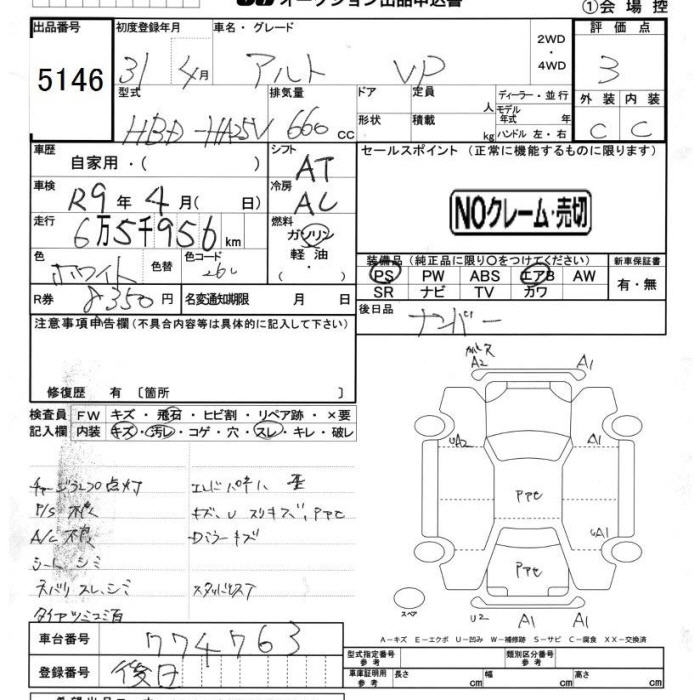 オークション出品申込書
①会場控
出品番号 5146
初度登録年月 31 4月
車名・グレード アルト VP
2WD・4WD
評価点 3
外装 C 内装 C
型式 HBD-HA25V
排気量 660 cc
ドア 形状
定員 人 積載 kg
ディーラー・並行
モデル年式 年
ハンドル 左・右
車歴 自家用・( )
シフト AT
セールスポイント(正常に機能するものに限ります)
車検 R9年4月( 日)
冷房 AC
NOクレーム・売切
走行 6万5千956 km
燃料 ガソリン 軽油 ・( )
色 ホワイト 色替 色コード 26U
装備品(純正品に限り○をつけてください)
PS PW ABS エアB AW
SR ナビ TV カワ
新車保証書 有・無
R券 8350円 名変通期限 月 日
後日品 ナンバー
注意事項申告欄(不具合内容等は具体的に記入して下さい)
修復歴 有 〔箇所 〕
検査員記入欄 FW キズ・飛石・ヒビ割・リペア跡・×要
内装 キズ・汚レ・コゲ・穴・スレ・キレ・破レ
点灯
P/S 不良
A/C 不良
シート シミ
ネバリ スレ、シミ
キズ、U スリキズ、Pアせ
Dミラーキズ
A2 A1
UA2 A1
Pアせ
UA1
Pアせ
スペア
U2 A1 A1
A−キズ E−エクボ U−凹み W−補修跡 S−サビ C−腐食 XX−交換済
車台番号 774763
登録番号 後日
型式指定番号 参考 類別区分番号 参考
車庫証明用 参考 長さ cm 幅 cm 高さ cm